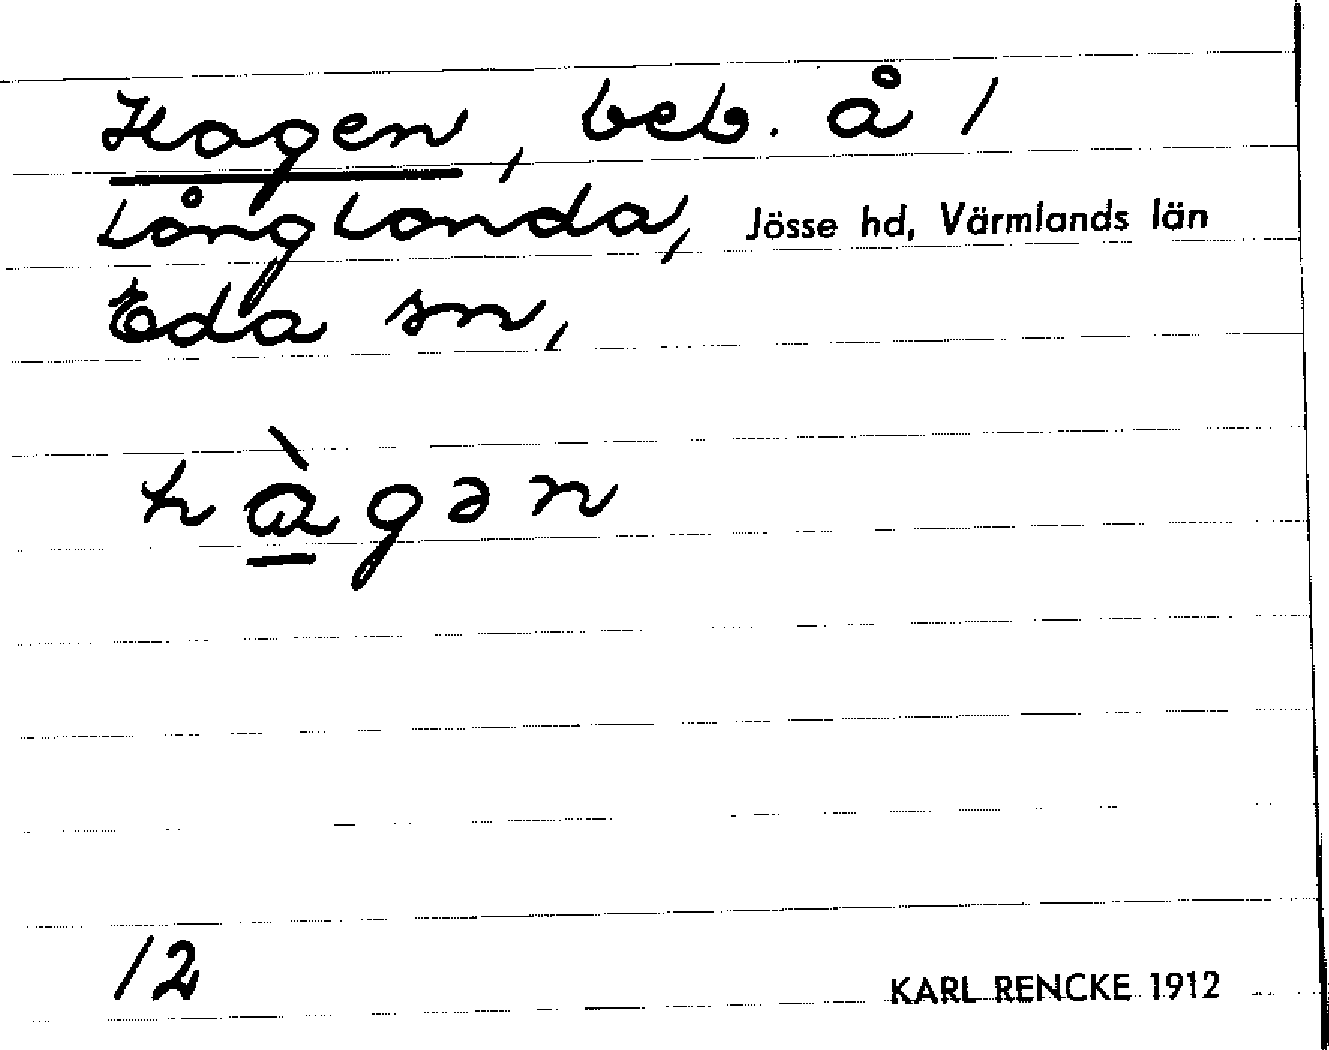 Hagen, beb. å 1
Långlanda, Jösse hd, Värmlands län
Eda sn,
hàgən
12
KARL RENCKE 1912